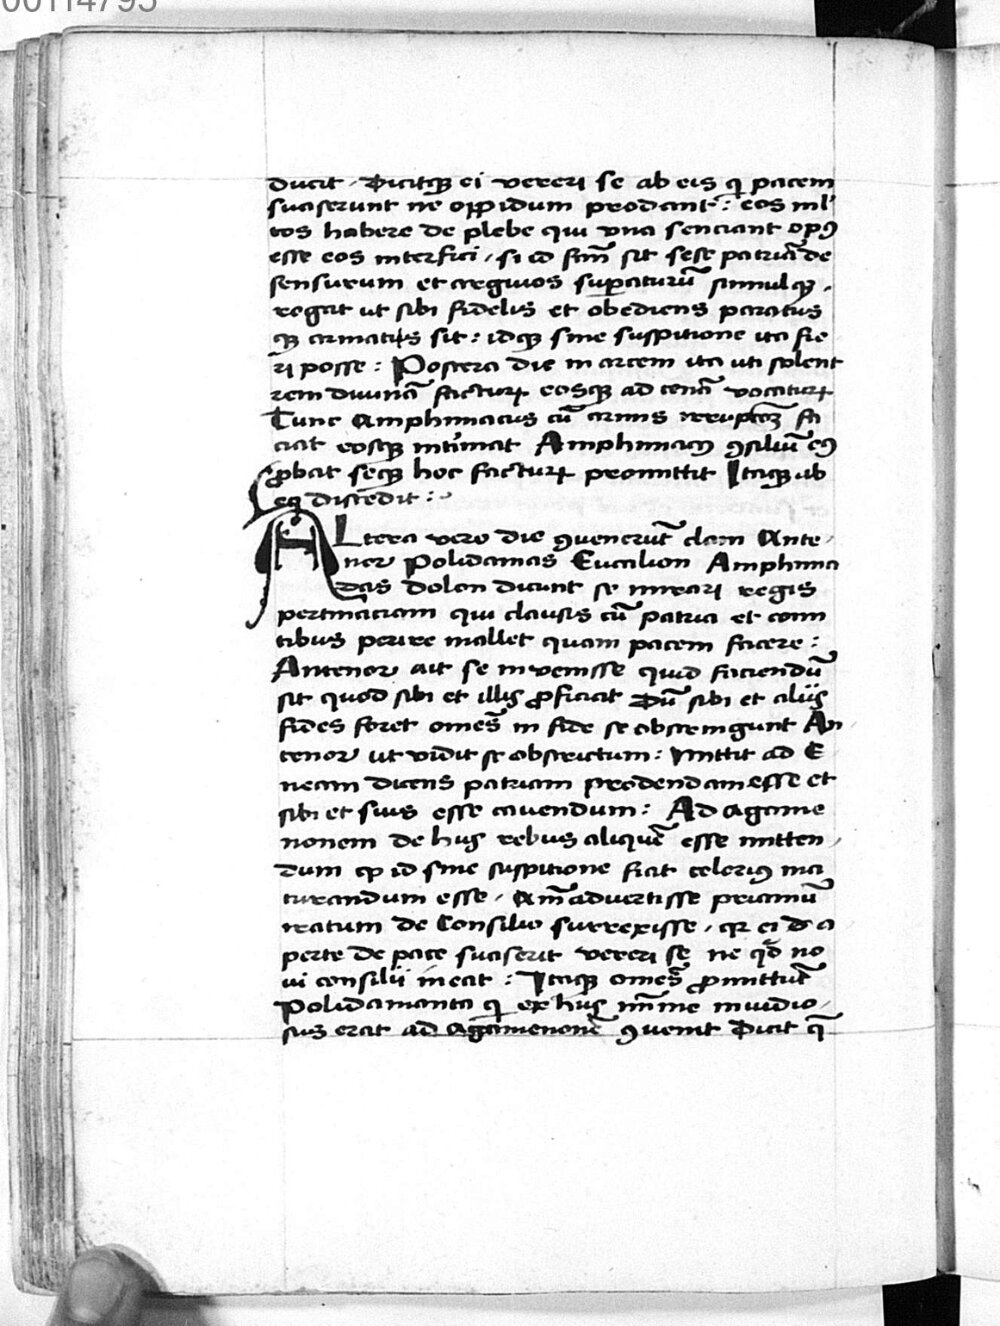 00114795
ducit. Dicitqꝫ ei vereri se ab eis qͥ pacem
suaserunt ne oppidum prodant: eos ml̕
tos habere de plebe qui vna senciant opꝯ
esse eos interfici, si id fīm̄ sit sese patriā de
sensurum et argiuos suꝑaturū simulqꝫ.
rogat ut sibi fidelis et obediens paratus
qꝫ armatus sit: idqꝫ sine suspitione ita fie
ri posse: Postera die in arcem ita uti solent
rem diuinā facturꝝ eosqꝫ ad cenā vocaturꝝ
Tunc Amphimacus cū armis irruptōꝫ fa
ciat eosqꝫ intimat Amphimacꝯ ꝯsiliū eiꝯ
ꝓbat seqꝫ hoc facturꝝ promittit Itaqꝫ ab
eo discedit:
ALtera vero die ꝯuenerūt clam Ante
nor Polidamas Eucalion Amphima
das dolon dicunt se mirari regis
pertinaciam qui clausis cū patria et comi
tibus perire mallet quam pacem facere:
Antenor ait se invenisse quid faciendū
sit quod sibi et illis ꝓficiat Dū sibi et aliis
fides foret omēs in fide se obstringunt An
tenor ut vidit se obstrictum: Mittit ad E
neam dicens patriam prodendam esse et
sibi et suis esse cauendum: Ad Agame
nonem de hiis rebus aliquē esse mitten
dum qꝫ id sine suspitione fiat celeriꝯ ma
turandum esse. Aīmadvertisse priamū
iratum de Consilio surrexisse, qꝛ ei d̕ a
perte de pace suaserit vereri se ne qͩ no
ui consilii ineat: Itaqꝫ omēs ꝓmittūt
Polidamanta qͥ ex hiis mīme inuidio
sus erat ad Agamenonē ꝯuenit Dicit q̄